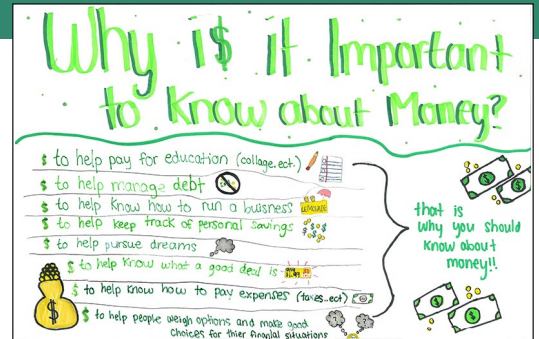 Why i$ it Important
to know about Money?
$ to help pay for education (collage.ect.)
$ to help manage debt
$ to help know how to run a buisness
LEMONADE
$ to help keep track of personal savings
$ to help pursue dreams
$ to help know what a good deal is
$ to help know how to pay expenses (taxes..ect)
$ to help people weigh options and make good
choices for thier finanial situations
that is
why you should
know about
money!!